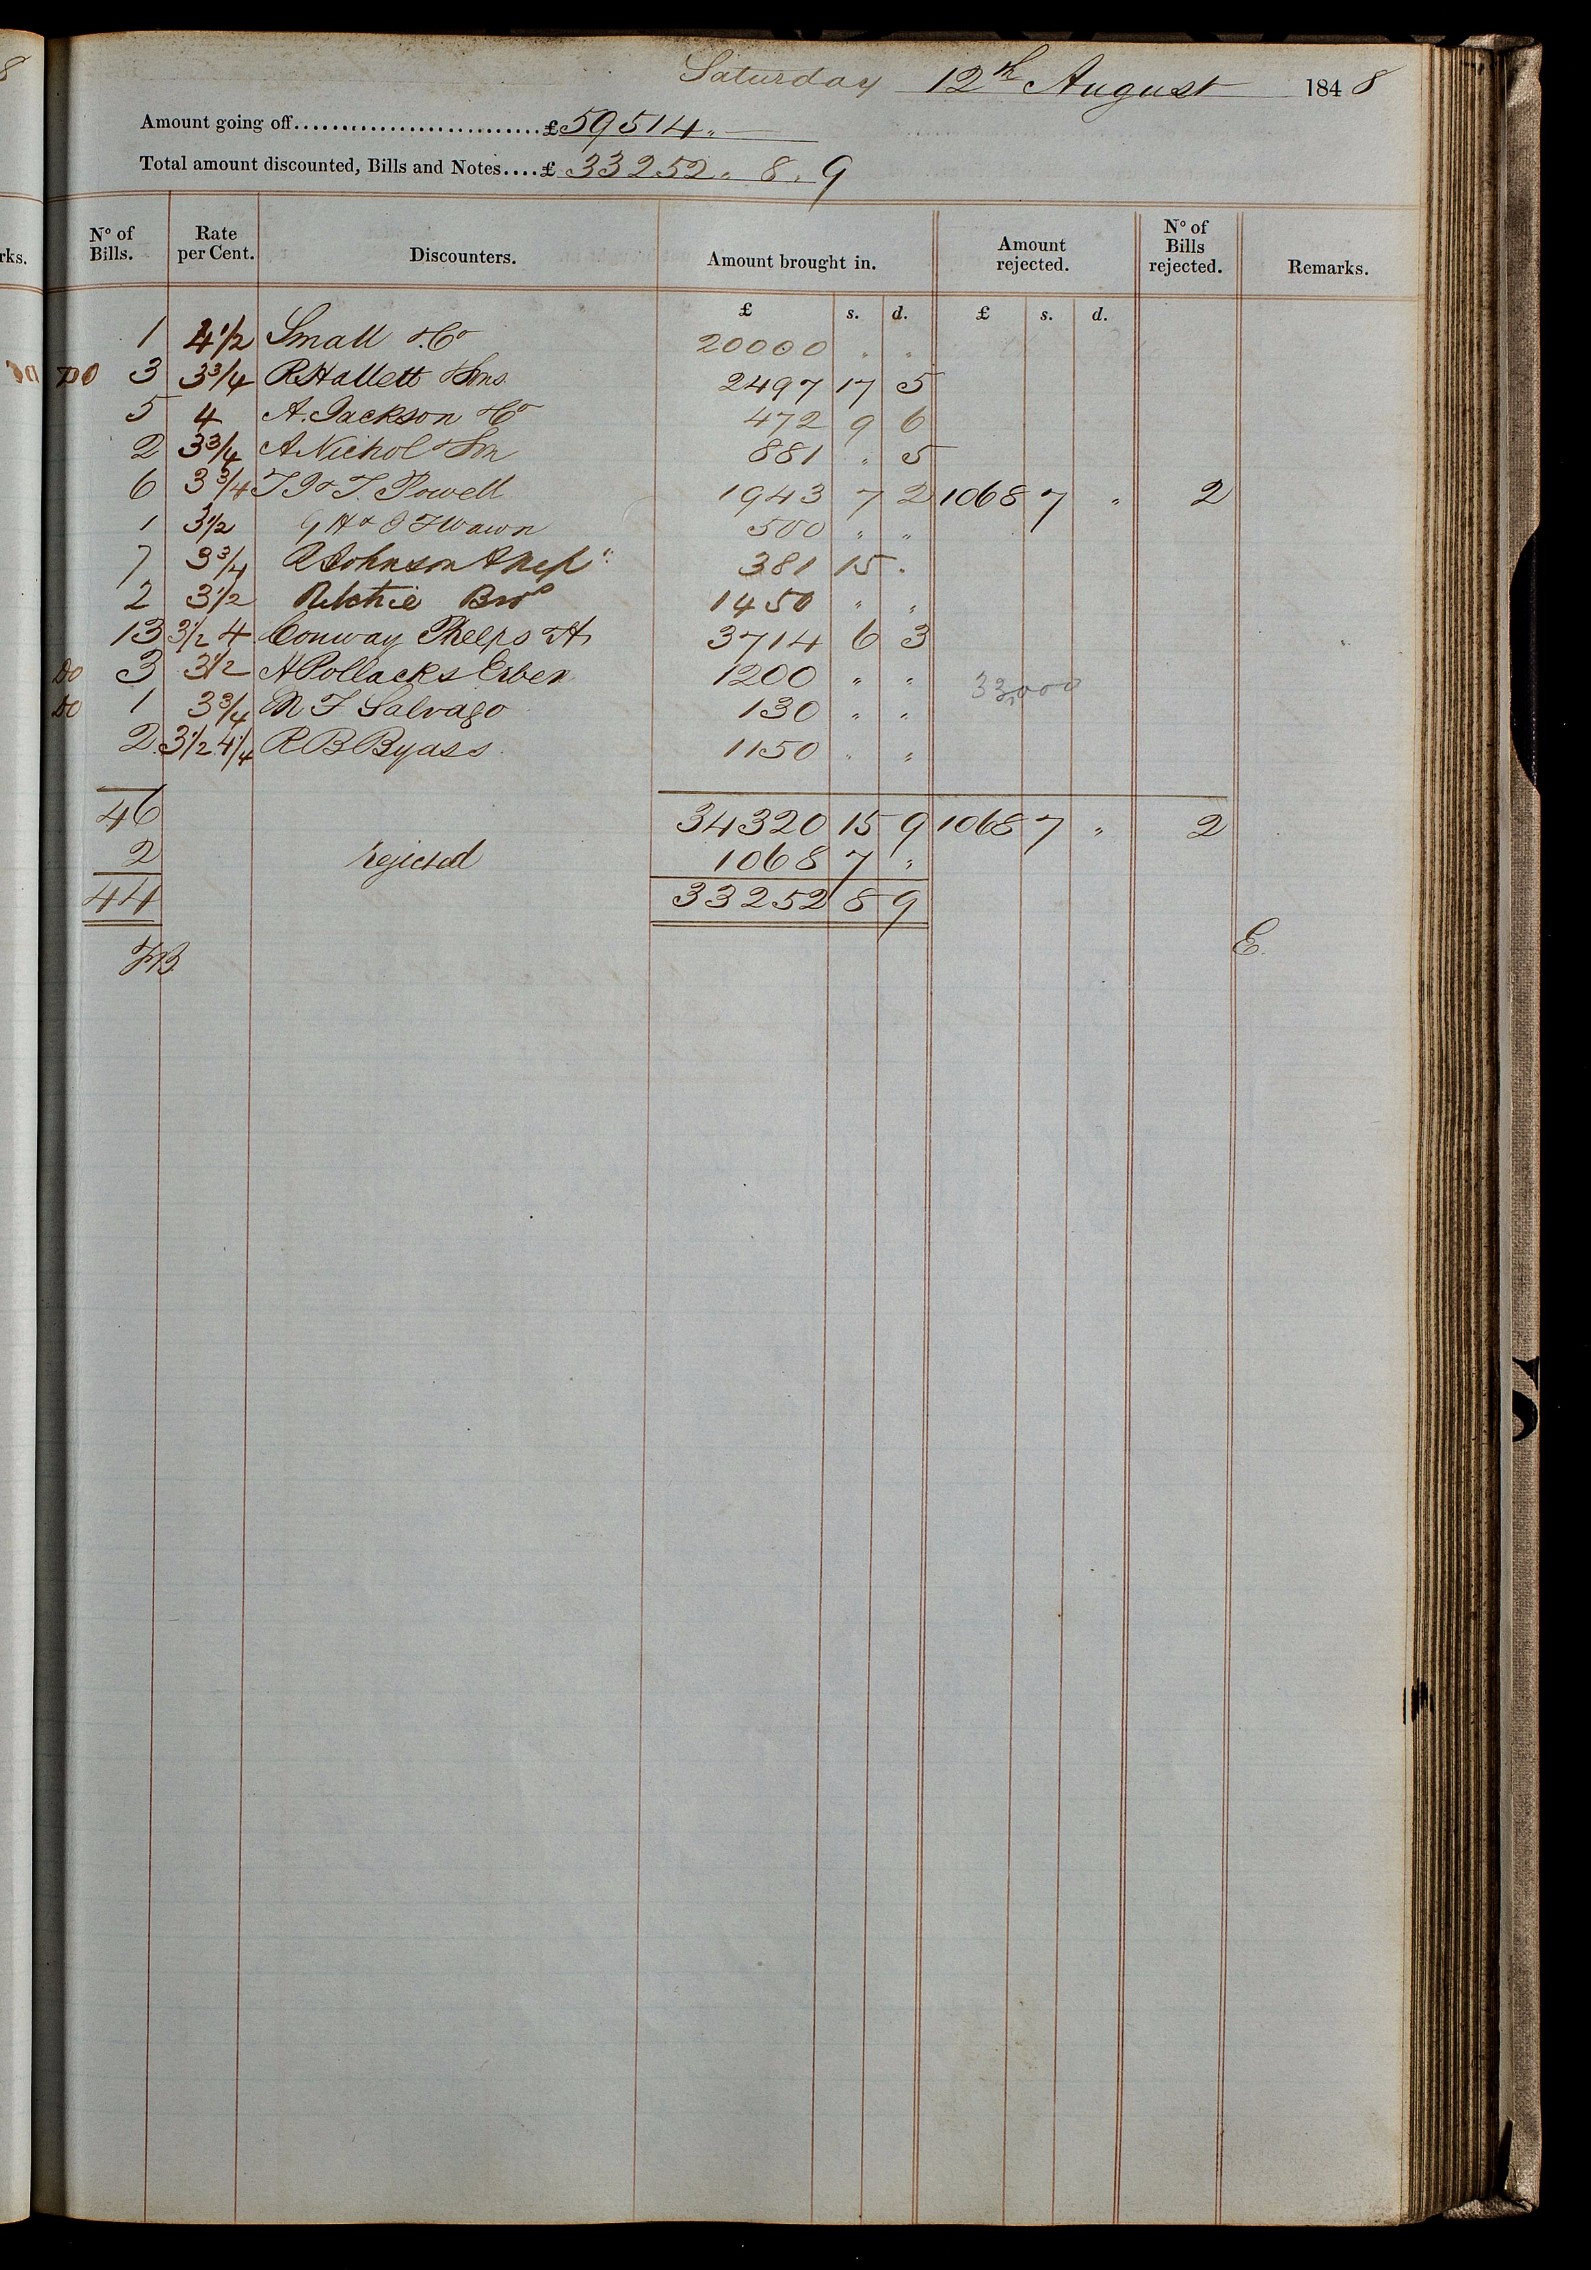 Saturday 12th August 1848
Amount going off...........................£59514 " —
Total amount discounted, Bills and Notes....£ 33252 " 8 " 9
No of Bills. Rate per Cent. Discounters. Amount brought in. Amount rejected. No of Bills rejected. Remarks.
£ s. d. £ s. d.
1 4 1/2 Small & Co 20000 " "
Do 3 3 3/4 R Hallett & Sons 2497 17 5
5 4 A. Jackson & Co 472 9 6
2 3 3/4 A Nichol & Son 881 " 5
6 3 3/4 T J & T. Powell 1943 7 2 1068 7 " 2
1 3 1/2 G H & J 500 " "
7 3 3/4 R Johnson & Neph 381 15 "
2 3 1/2 Ritchie Bros 1450 " "
13 3 1/2 4 Conway Phelps & 3714 6 3
Do 3 3 1/2 A Pollacks Erben 1200 " " 33,000
Do 1 3 3/4 M F Salvago 130 " "
2 3 1/2 4 1/4 R B Byass 1150 " "
46 34320 15 9 1068 7 " 2
2 rejected 1068 7 "
44 33252 8 9
E.